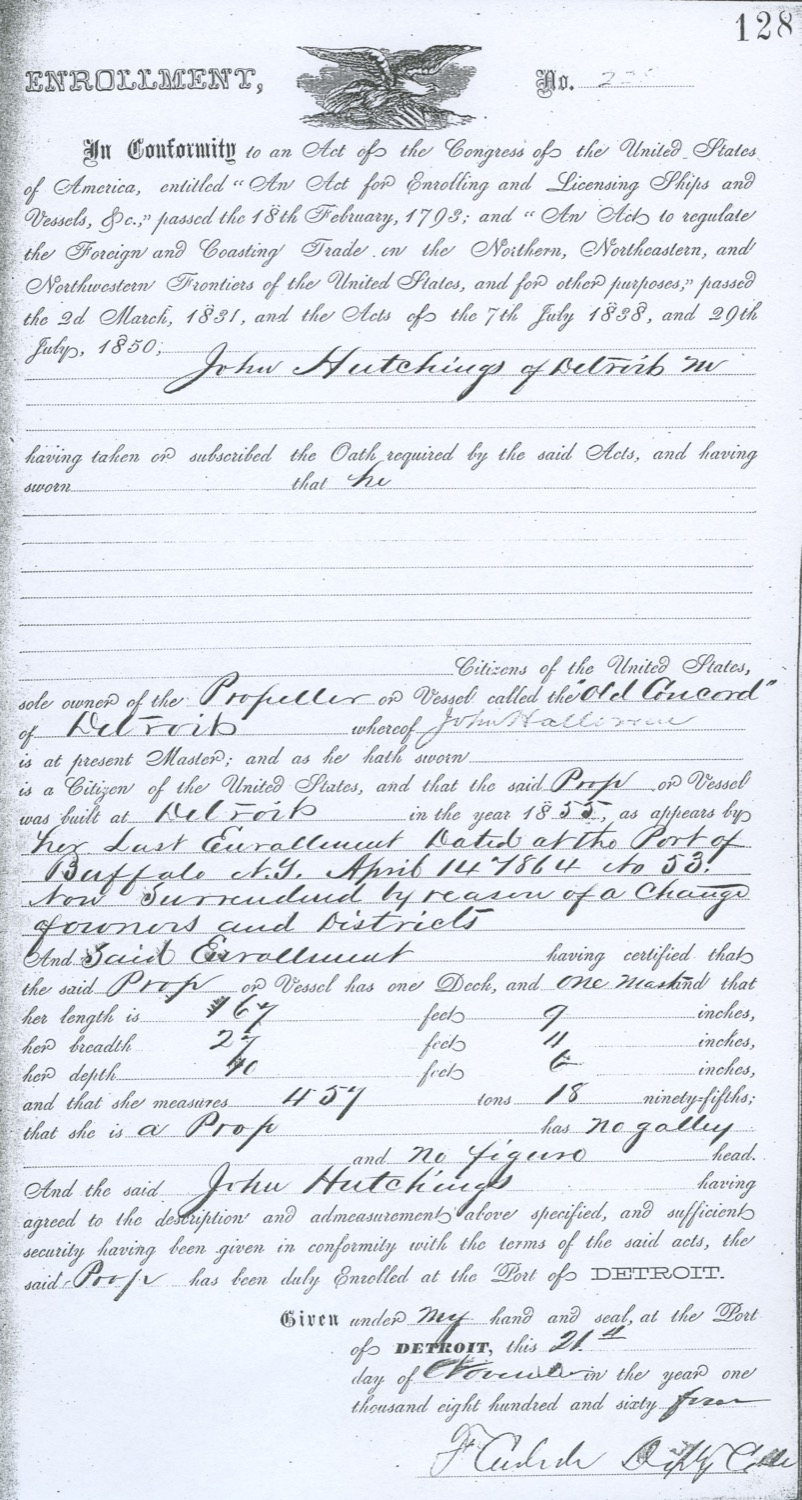 128
ENROLLMENT, No.
In Conformity to an Act of the Congress of the United States
of America, entitled "An Act for Enrolling and Licensing Ships and
Vessels, &c.," passed the 18th February, 1793; and "An Act to regulate
the Foreign and Coasting Trade in the Northern, Northeastern, and
Northwestern Frontiers of the United States, and for other purposes," passed
the 2d March, 1831, and the Acts of the 7th July 1838, and 29th
July, 1850,
John Hutchings of Detroit M
having taken or subscribed the Oath required by the said Acts, and having
sworn that he
Citizens of the United States,
sole owner of the Propeller or Vessel called the "Old Concord"
of Detroit whereof John
is at present Master; and as he hath sworn
is a Citizen of the United States, and that the said Prop or Vessel
was built at Detroit in the year 1855, as appears by
her Last Enrollment Dated at the Port of
Buffalo N.Y. April 14 1864 No 53.
Now Surrendered by reason of a Change
of owners and Districts
And Said Enrollment having certified that
the said Prop or Vessel has one Deck, and one mast and that
her length is 167 feet 9 inches,
her breadth 27 feet 11 inches,
her depth 10 feet 6 inches,
and that she measures 457 tons 18 ninety-fifths;
that she is a Prop has no galley
and no figure head.
And the said John Hutchings having
agreed to the description and admeasurement above specified, and sufficient
security having been given in conformity with the terms of the said acts, the
said Prop has been duly Enrolled at the Port of DETROIT.
Given under My hand and seal, at the Port
of DETROIT, this 21st
day of November in the year one
thousand eight hundred and sixty four
Depty